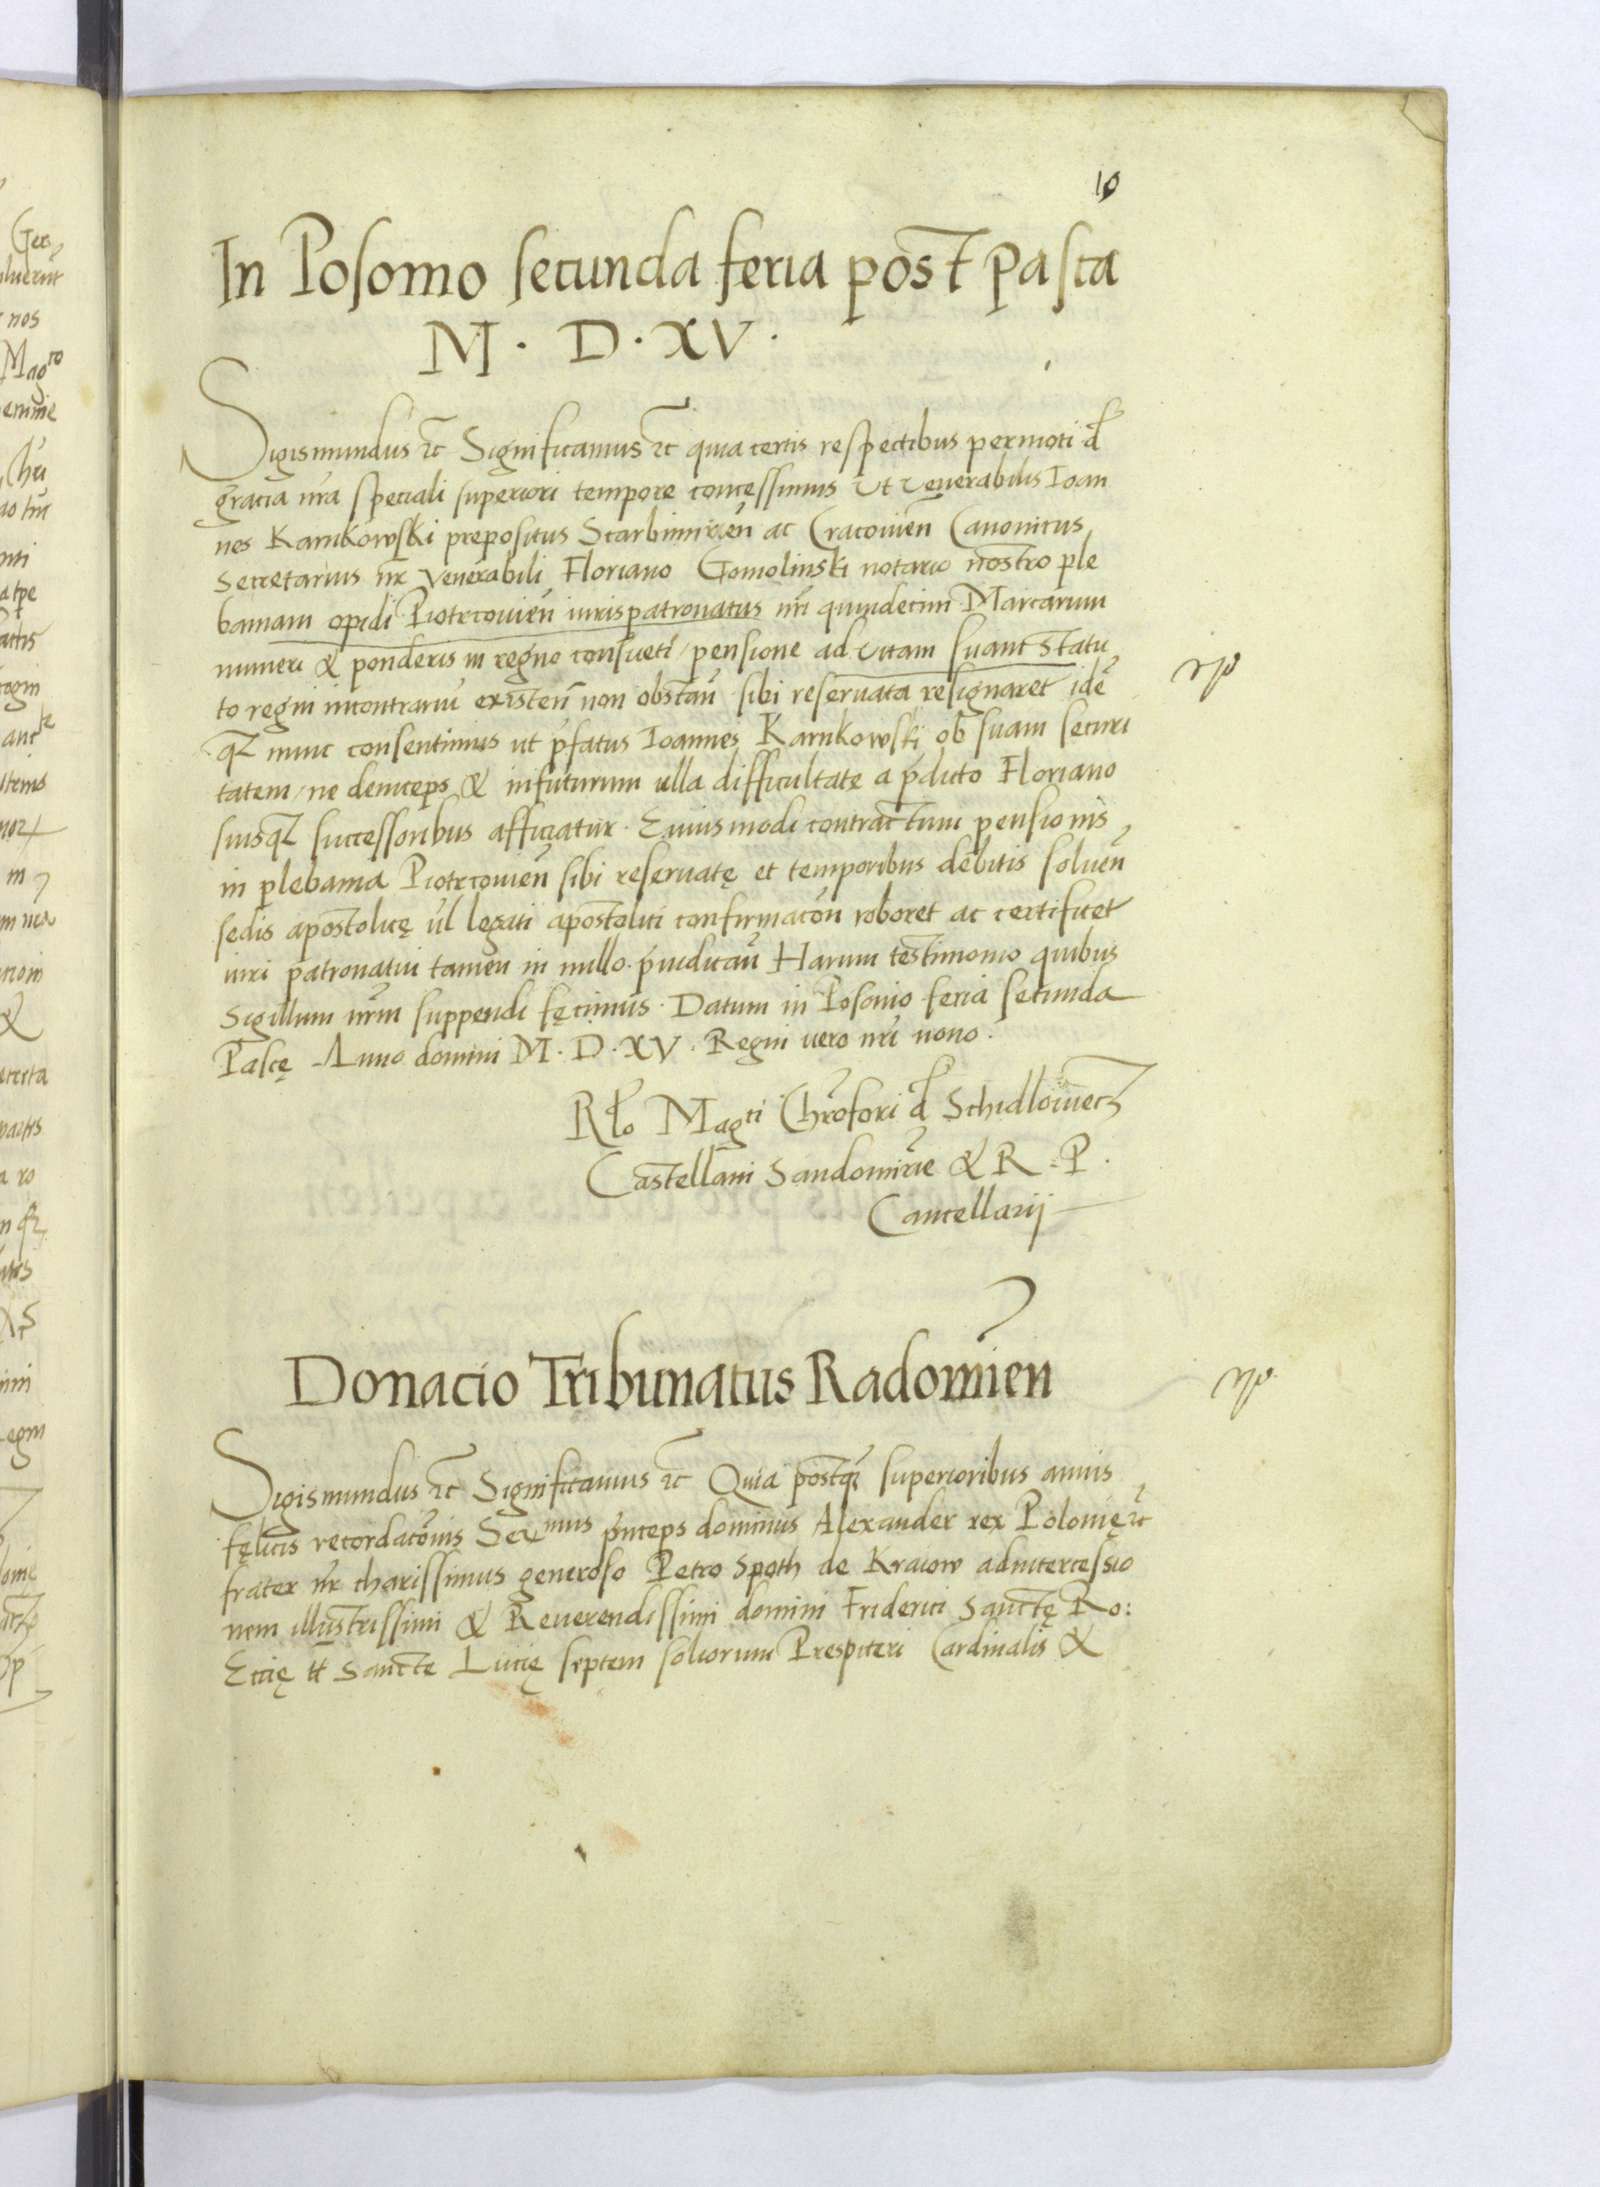 10
In Posomo secunda feria post pasca
M. D. XV.
Sigismundus etc Significamus etc quia certis respectibus permoti d
gracia nra speciali superiori tempore concessimus ut venerabilis Ioan
nes Karnkowski prepositus Scarbimirien ac Cracovien Canonicus
Secretarius nr venerabili Floriano Gomolinski notario nostro ple
bamam opidi Piotrcovien iurispatronatus nri quindecim Marcarum
numeri & ponderis in regno consueti / pensione ad vitam suam Statu
to regni incontrariu existen non obstan sibi reservata resignaret ide
qz nunc consentimus ut pfatus Ioannes Karnkowski ob suam securi
tatem / ne deinceps & infuturum ulla difficultate a pdicto Floriano
suisqz successoribus afficiatur. Euiusmodi contractum pensionis
in plebama Piotrcovien sibi reservatę et temporibus debitis solven
sedis apostolicę vl legati apostolici confirmacon roboret ac certificet
iuri patronatui tamen in nullo piudican Harum testimonio quibus
Sigillum nrm suppendi fęcimus. Datum in Posonio feria secunda
Pascę Anno domini M. D. XV. Regni vero nri nono.
Rlo Magci Chrofori d Schidlowiecz
Castellani Sandomirie & R. P.
Cancellarij
Donacio Tribunatus Radomien
Sigismundus etc Significamus etc Quia postqz superioribus annis
fęlicis recordaconis Sermus pnceps dominus Alexander rex Polonię etc
frater nr charissimus generoso Petro Spoth de Kraiow adintercessio
nem illustrissimi & Reverendissimi domini Friderici Sanctę Ro:
Eccię tt Sancte Lucię septem soliorum Prespiteri Cardinalis &